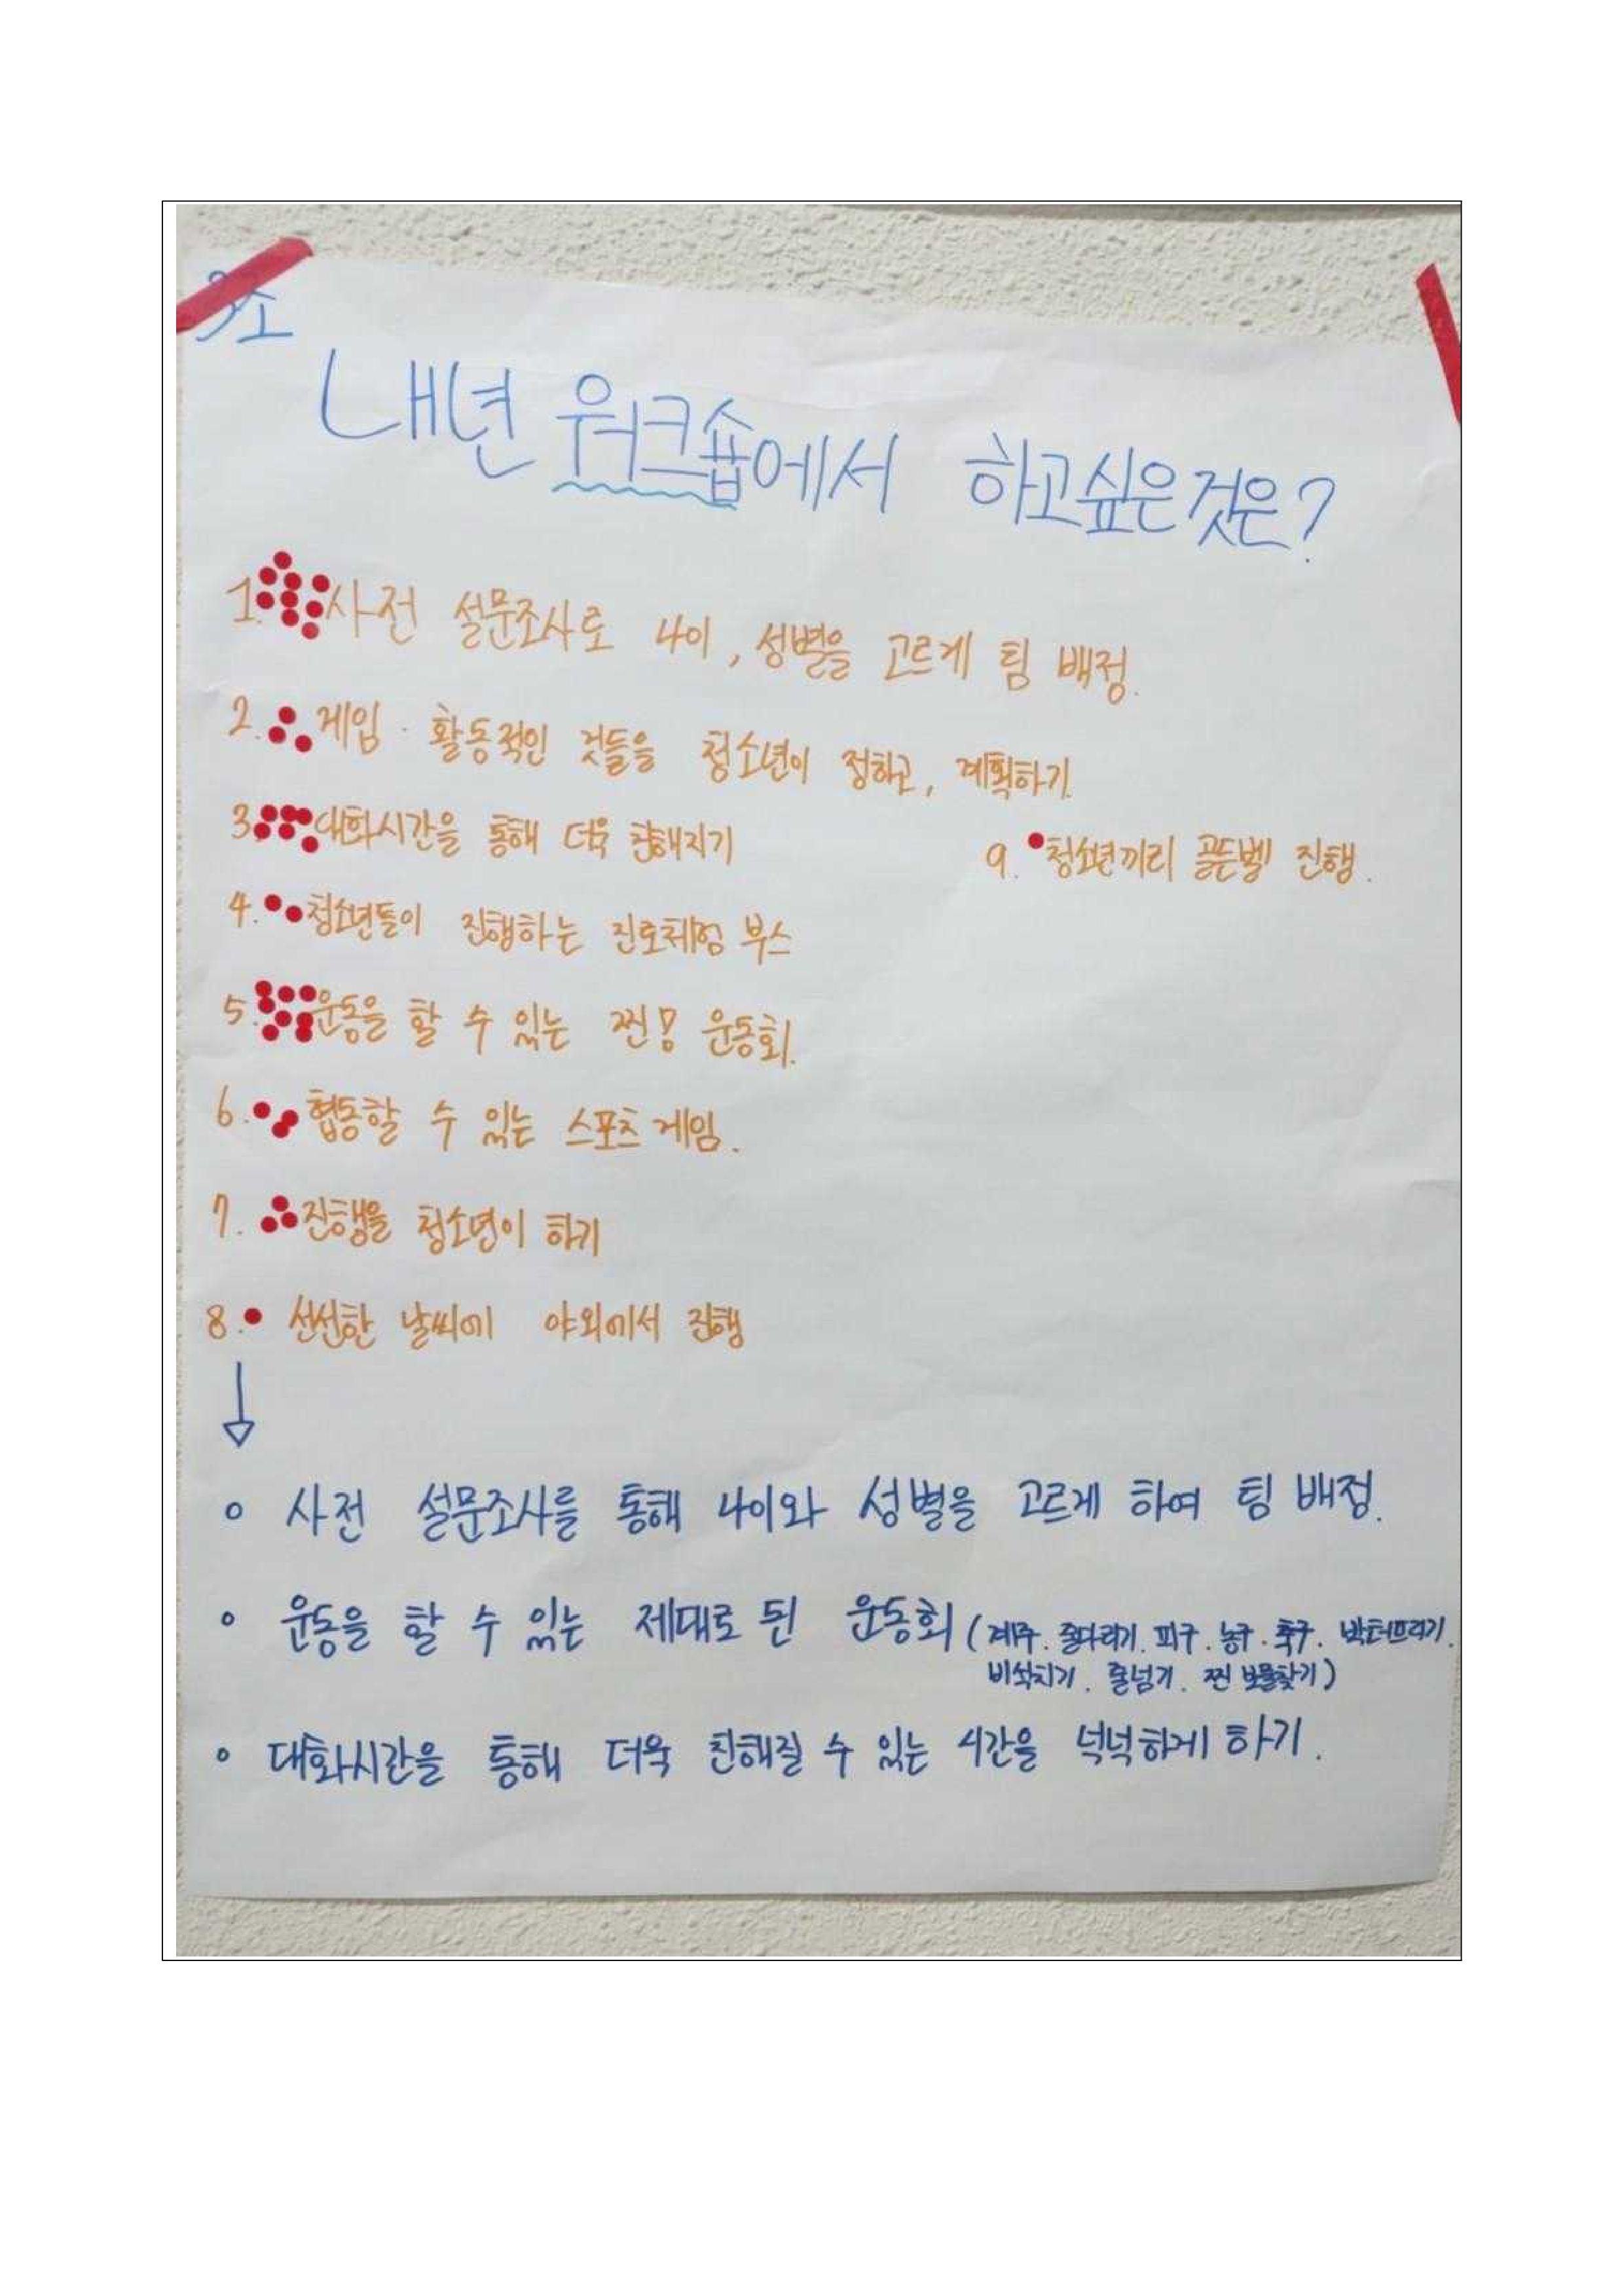 3조
내년 워크숍에서 하고싶은것은?
1. 사전 설문조사로 나이, 성별을 고르게 팀 배정.
2. 게임·활동적인 것들을 청소년이 정하고, 계획하기.
3. 대화시간을 통해 더욱 친해지기
4. 청소년들이 진행하는 진로체험 부스
5. 운동을 할 수 있는 찐 운동회.
6. 협동할 수 있는 스포츠 게임.
7. 진행을 청소년이 하기
8. 선선한 날씨에 야외에서 진행
9. 청소년끼리 골든벨 진행.
↓
○ 사전 설문조사를 통해 나이와 성별을 고르게 하여 팀 배정.
○ 운동을 할 수 있는 제대로 된 운동회 (계주. 줄다리기. 피구. 농구. 축구. 박터뜨리기.
비석치기. 줄넘기. 찐 보물찾기)
○ 대화시간을 통해 더욱 친해질 수 있는 시간을 넉넉하게 하기.